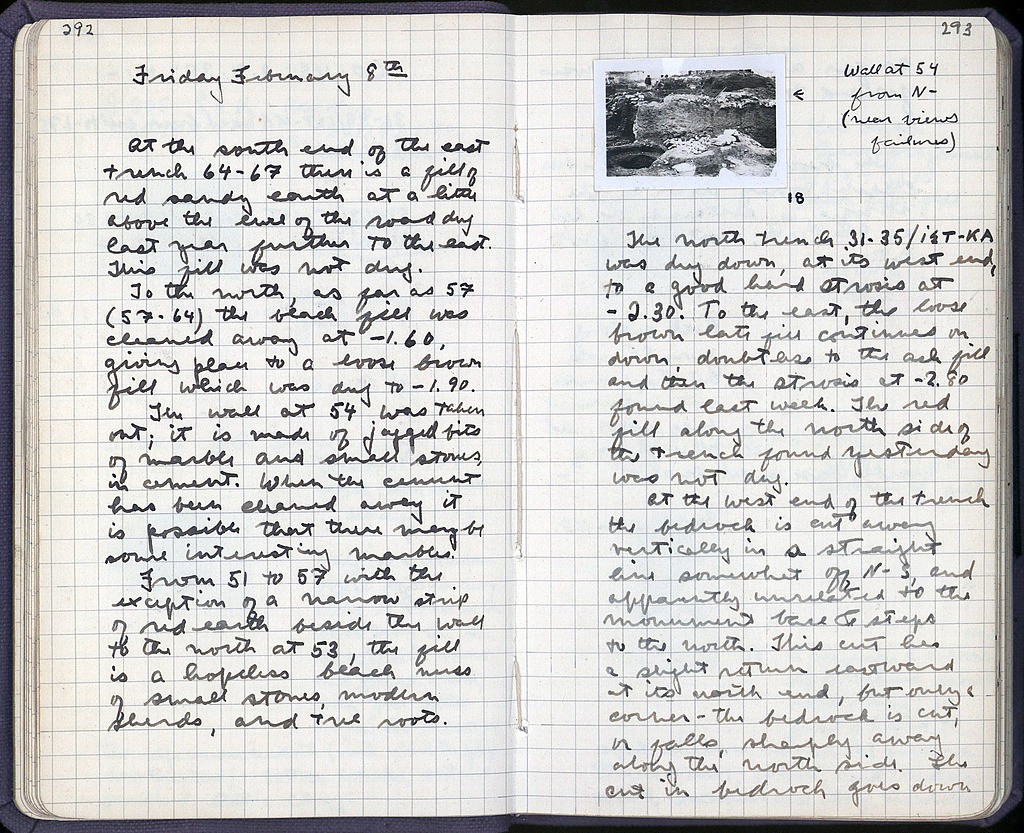 292
Friday February 8th
At the south end of the east
trench 64-67 there is a fill of
red sandy earth at a little
above the level of the road dug
last year further to the east.
This fill was not dug.
To the north, as far as 57
(57-64) the beach fill was
cleaned away at -1.60,
giving place to a loose brown
fill which was dug to -1.90.
The wall at 54 was taken
out; it is made of jagged bits
of marble and small stones,
in cement. When the cement
has been cleaned away it
is possible that there may be
some interesting marbles.
From 51 to 57 with the
exception of a narrow strip
of red earth beside the wall
to the north at 53, the fill
is a hopeless beach mess
of small stones, modern
sherds, and tree roots.
293
Wall at 54
from N-
(near views
failures)
18
The north trench 31-35/ -KA
was dug down, at its west end,
to a good hard strosis at
-2.30. To the east, the loose
brown late fill continues on
down, doubtless to the ash fill
and then the strosis at -2.80
found last week. The red
fill along the north side of
the trench found yesterday
was not dug.
At the west end of the trench
the bedrock is cut away
vertically in a straight
line somewhat off N-S, and
apparently unrelated to the
monument base & steps
to the north. This cut has
a slight return eastward
at its north end, but only a
corner - the bedrock is cut,
or falls, sharply away
along the north side. The
cut in bedrock goes down